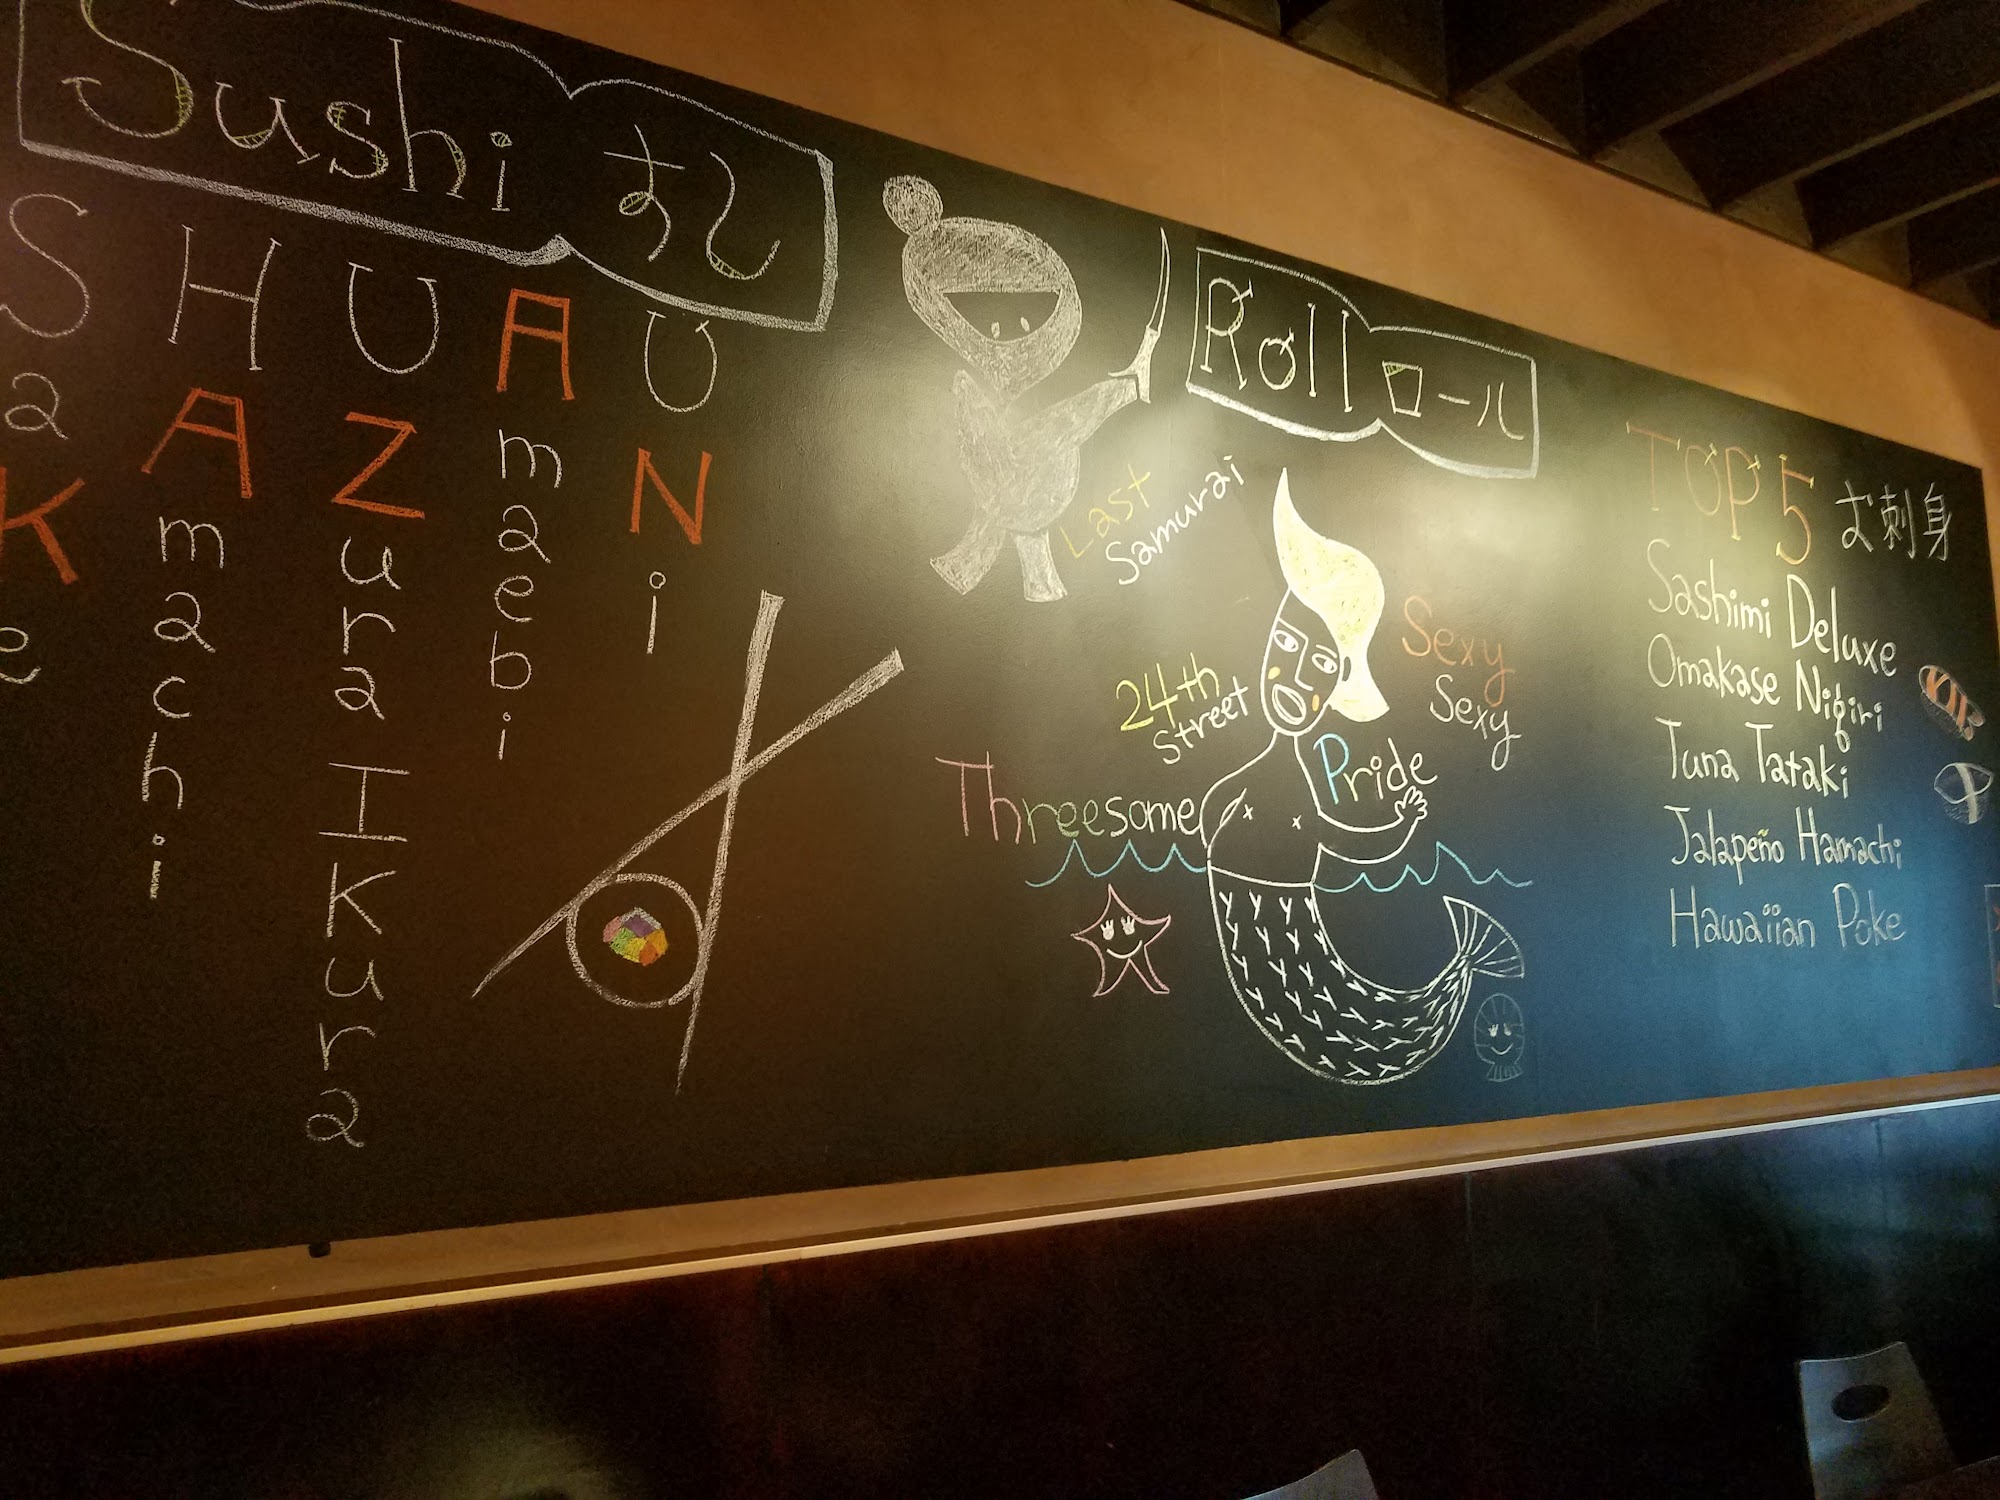 Sushi すし
SaKe
HAmachi
UZura IKura
Amaebi
UNi
Roll ロール
Last
Samurai
24th
Street
Sexy
Sexy
Pride
Threesome
TOP 5 お刺身
Sashimi Deluxe
Omakase Nigiri
Tuna Tataki
Jalapeño Hamachi
Hawaiian Poke